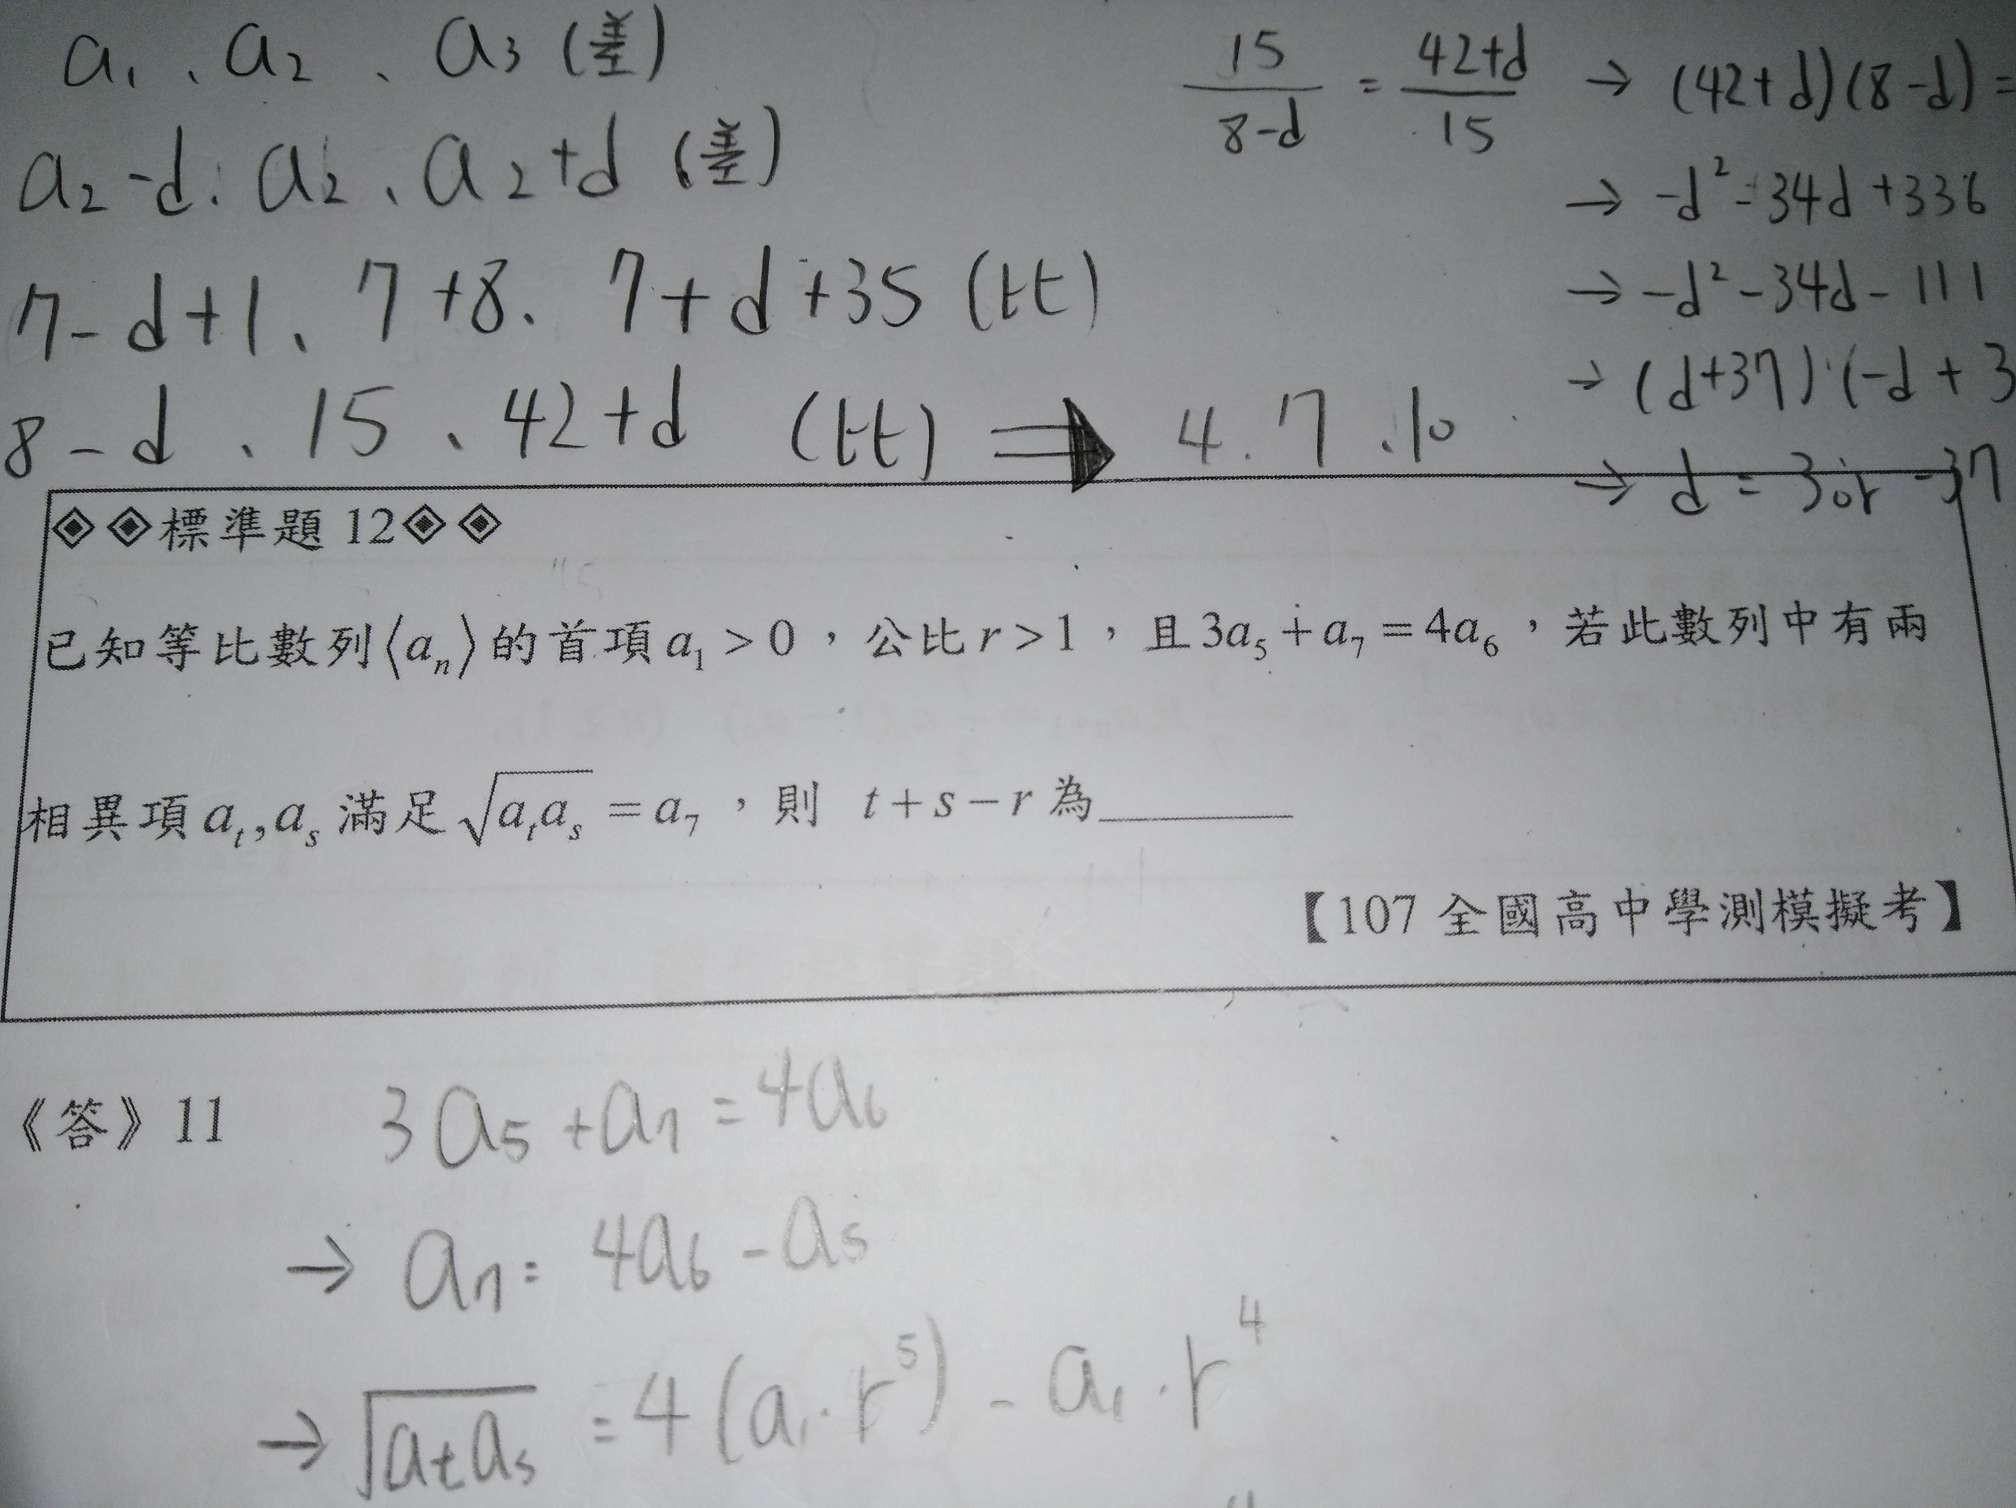 a₁、a₂、a₃ (差)
a₂-d、a₂、a₂+d (差)
7-d+1、7+8、7+d+35 (比)
8-d、15、42+d (比) ⇒ 4、7、10
15/(8-d) = (42+d)/15 → (42+d)(8-d) =
→ -d²-34d+336
→ -d²-34d-111
→ (d+37)·(-d+3
→ d = 3 or -37
◈◈標準題 12◈◈
已知等比數列⟨aₙ⟩的首項a₁ > 0，公比r > 1，且3a₅ + a₇ = 4a₆，若此數列中有兩
相異項aₜ, aₛ滿足√(aₜaₛ) = a₇，則 t + s − r 為______
【107 全國高中學測模擬考】
《答》11
3a₅ + a₇ = 4a₆
→ a₇ = 4a₆ - a₅
→ √(aₜaₛ) = 4(a₁·r⁵) - a₁·r⁴